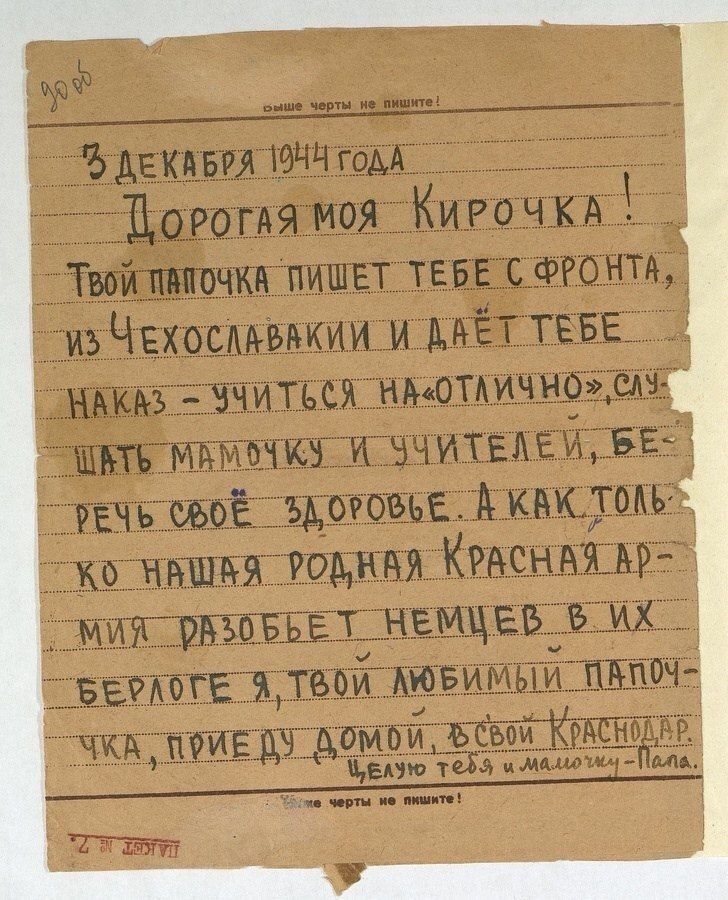 Выше черты не пишите!
3 ДЕКАБРЯ 1944 ГОДА
ДОРОГАЯ МОЯ КИРОЧКА!
ТВОЙ ПАПОЧКА ПИШЕТ ТЕБЕ С ФРОНТА,
ИЗ ЧЕХОСЛАВАКИИ И ДАЁТ ТЕБЕ
НАКАЗ – УЧИТЬСЯ НА «ОТЛИЧНО», СЛУ-
ШАТЬ МАМОЧКУ И УЧИТЕЛЕЙ, БЕ-
РЕЧЬ СВОЁ ЗДОРОВЬЕ. А КАК ТОЛЬ-
КО НАШАЯ РОДНАЯ КРАСНАЯ АР-
МИЯ РАЗОБЬЕТ НЕМЦЕВ В ИХ
БЕРЛОГЕ Я, ТВОЙ ЛЮБИМЫЙ ПАПОЧ-
ЧКА, ПРИЕДУ ДОМОЙ, В СВОЙ КРАСНОДАР.
ЦЕЛУЮ тебя и мамочку – Папа.
черты не пишите!
ПАКЕТ № 7.